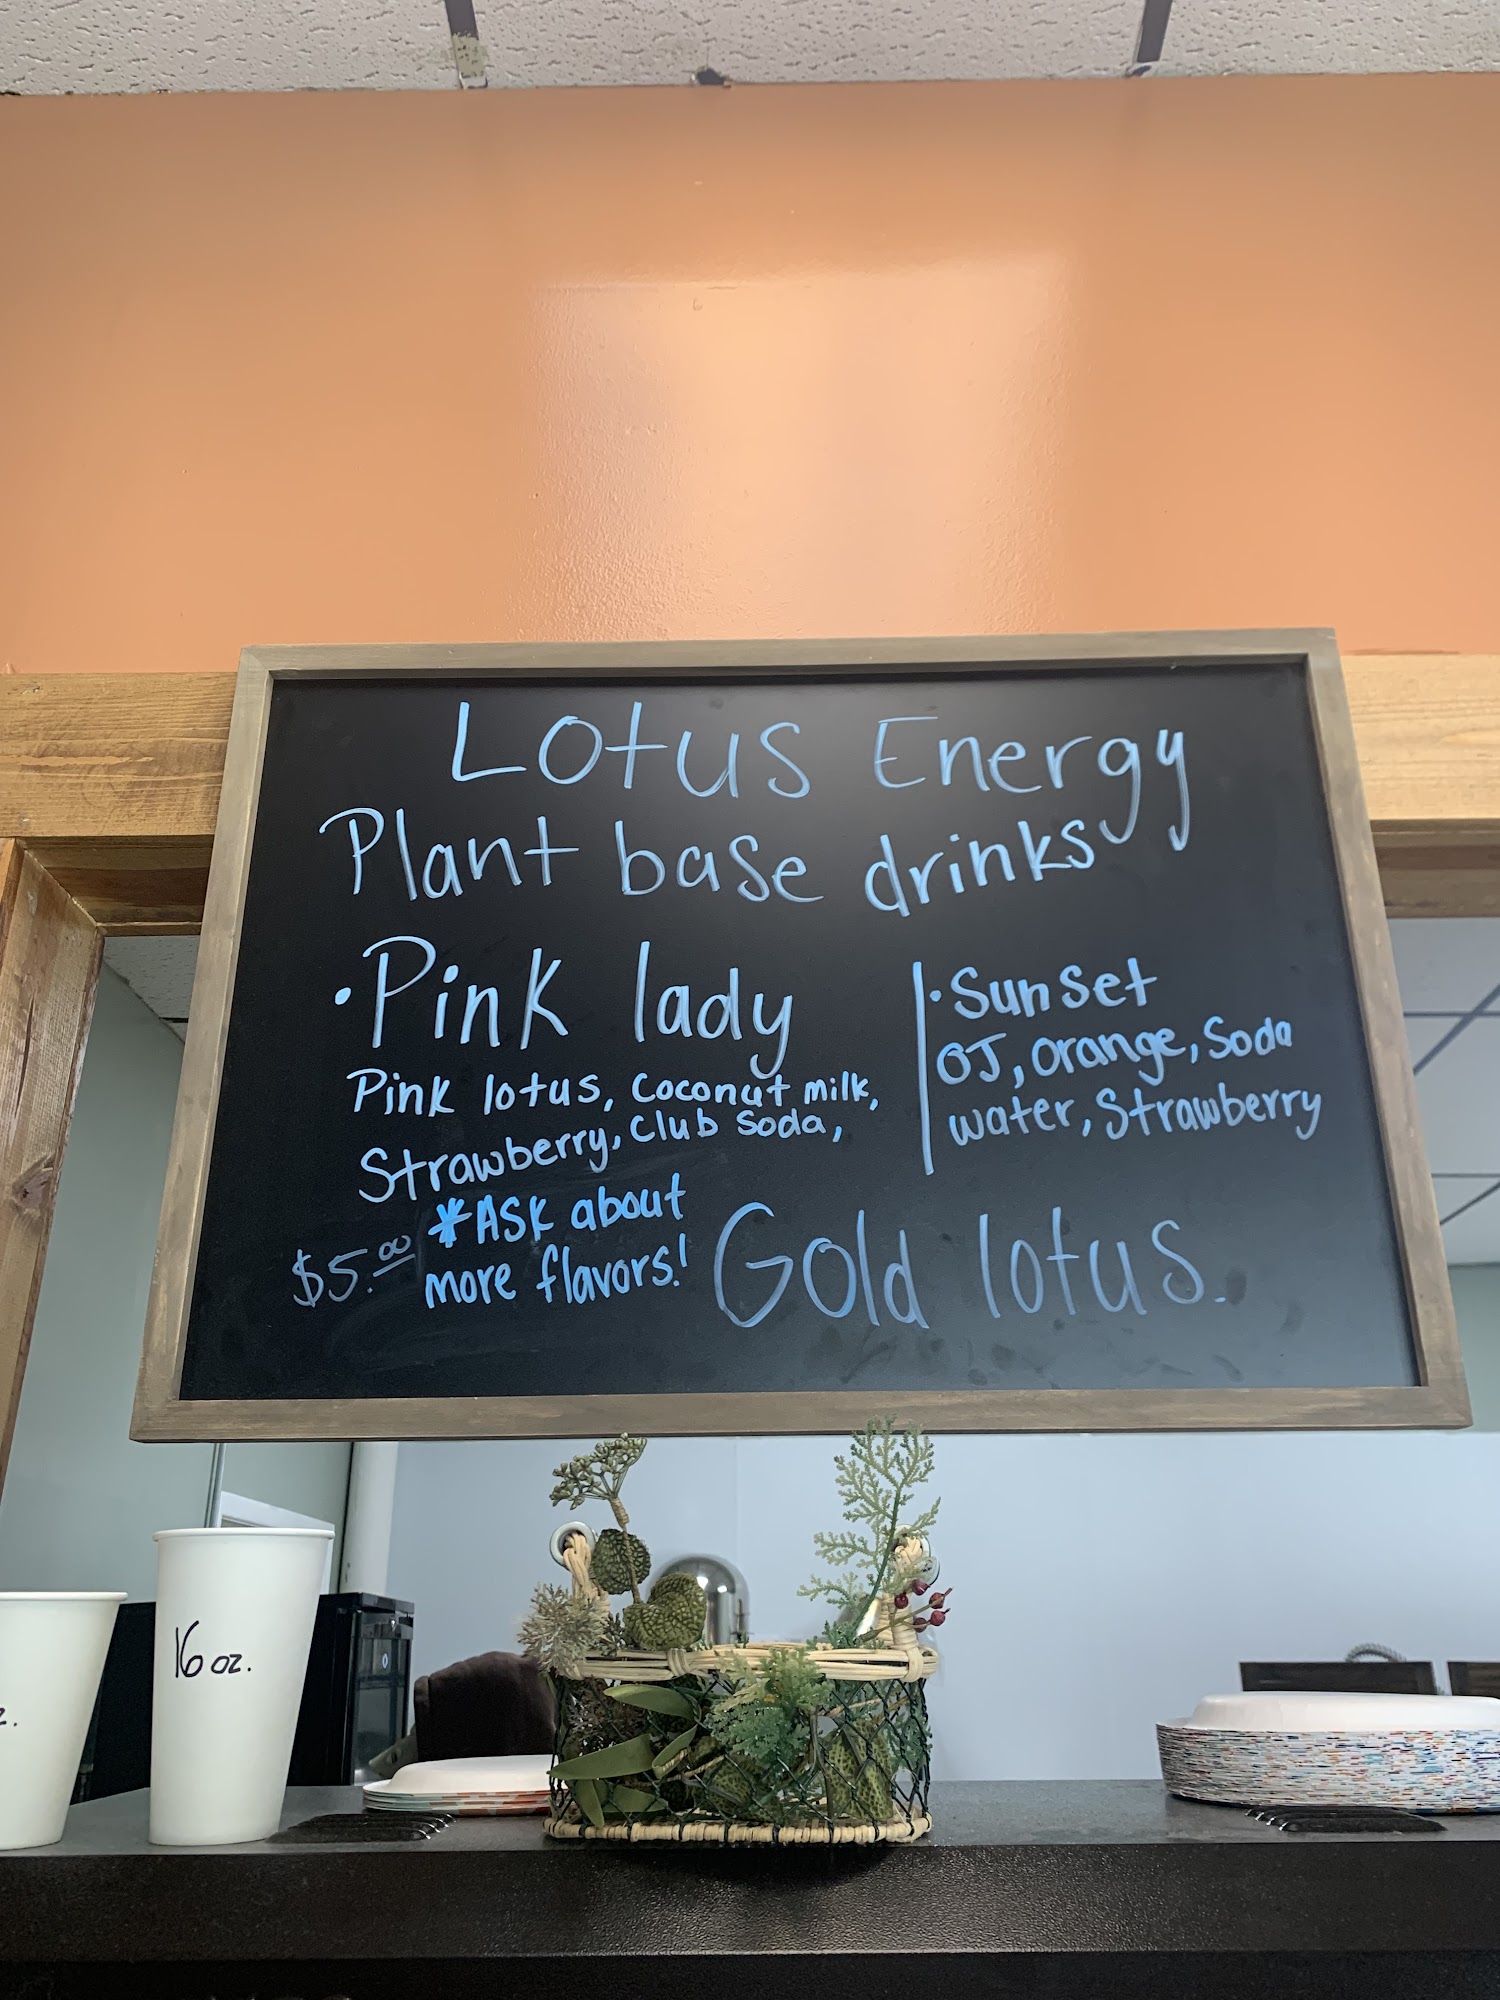 Lotus Energy
Plant base drinks
• Pink lady
Pink lotus, Coconut milk,
Strawberry, Club Soda,
$5.00
*ASK about
more flavors!
• Sunset
OJ, orange, Soda
water, Strawberry
Gold lotus.
16 oz.
z.